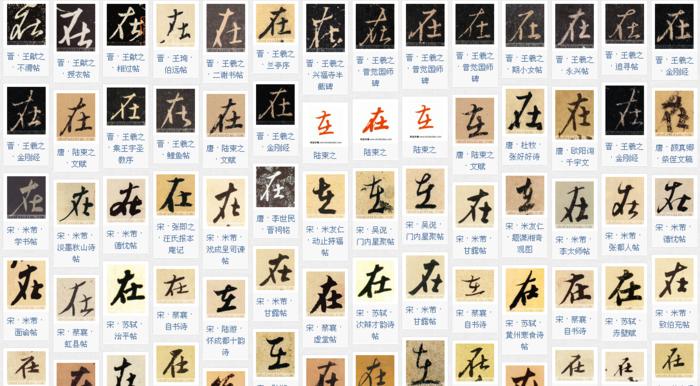 在
晋．王献之
在
晋．王献之
．授衣帖
在
晋．王献之
．相过帖
在
晋．王珣．
伯远帖
在
晋．王羲之
．二谢书帖
在
晋．王羲之
．兰亭序
在
晋．王羲之
．兴福寺半
截碑
在
晋．王羲之
．普觉国师
碑
在
晋．王羲之
．普觉国师
碑
在
晋．王羲之
．普觉国师
碑
在
晋．王羲之
．期小女帖
在
晋．王羲之
．永兴帖
在
晋．王羲之
．追寻帖
在
晋．王羲之
．金刚经
在
晋．王羲之
．金刚经
在
唐．陆柬之
．文赋
在
晋．王羲之
．集王字圣
教序
在
晋．王羲之
．鲤鱼帖
在
唐．陆柬之
．文赋
在
晋．王羲之
．金刚经
在
陆柬之
在
陆柬之
在
陆柬之
在
唐．陆柬之
．文赋
在
唐．杜牧．
张好好诗
在
唐．欧阳询
．千字文
在
晋．王羲之
．金刚经
在
唐．颜真卿
．祭侄文稿
在
宋．米芾．
学书帖
在
宋．米芾．
淡墨秋山诗
帖
在
宋．米芾．
德忱帖
在
宋．张即之
．汪氏报本
庵记
在
宋．米芾．
戏成呈司谏
帖
在
唐．李世民
．晋祠铭
在
宋．米友仁
．动止持福
帖
在
宋．吴说．
门内星聚帖
在
宋．吴说．
门内星聚帖
在
宋．米芾．
甘露帖
在
宋．米友仁
．题潇湘奇
观图
在
宋．米芾．
李太师帖
在
宋．米芾．
张都人帖
在
宋．米芾．
德忱帖
在
宋．米芾．
面谕帖
在
宋．米芾．
虹县帖
在
宋．苏轼．
治平帖
在
宋．蔡襄．
自书诗
在
宋．陆游．
怀成都十韵
诗
在
宋．米芾．
甘露帖
在
宋．蔡襄．
虚堂帖
在
宋．苏轼．
次辩才韵诗
帖
在
宋．米芾．
甘露帖
在
宋．蔡襄．
自书诗
在
宋．苏轼．
黄州寒食诗
帖
在
宋．蔡襄．
自书诗
在
宋．苏轼．
赤壁赋
在
宋．米芾．
致伯充帖
在
在
在
在
在
在
在
在